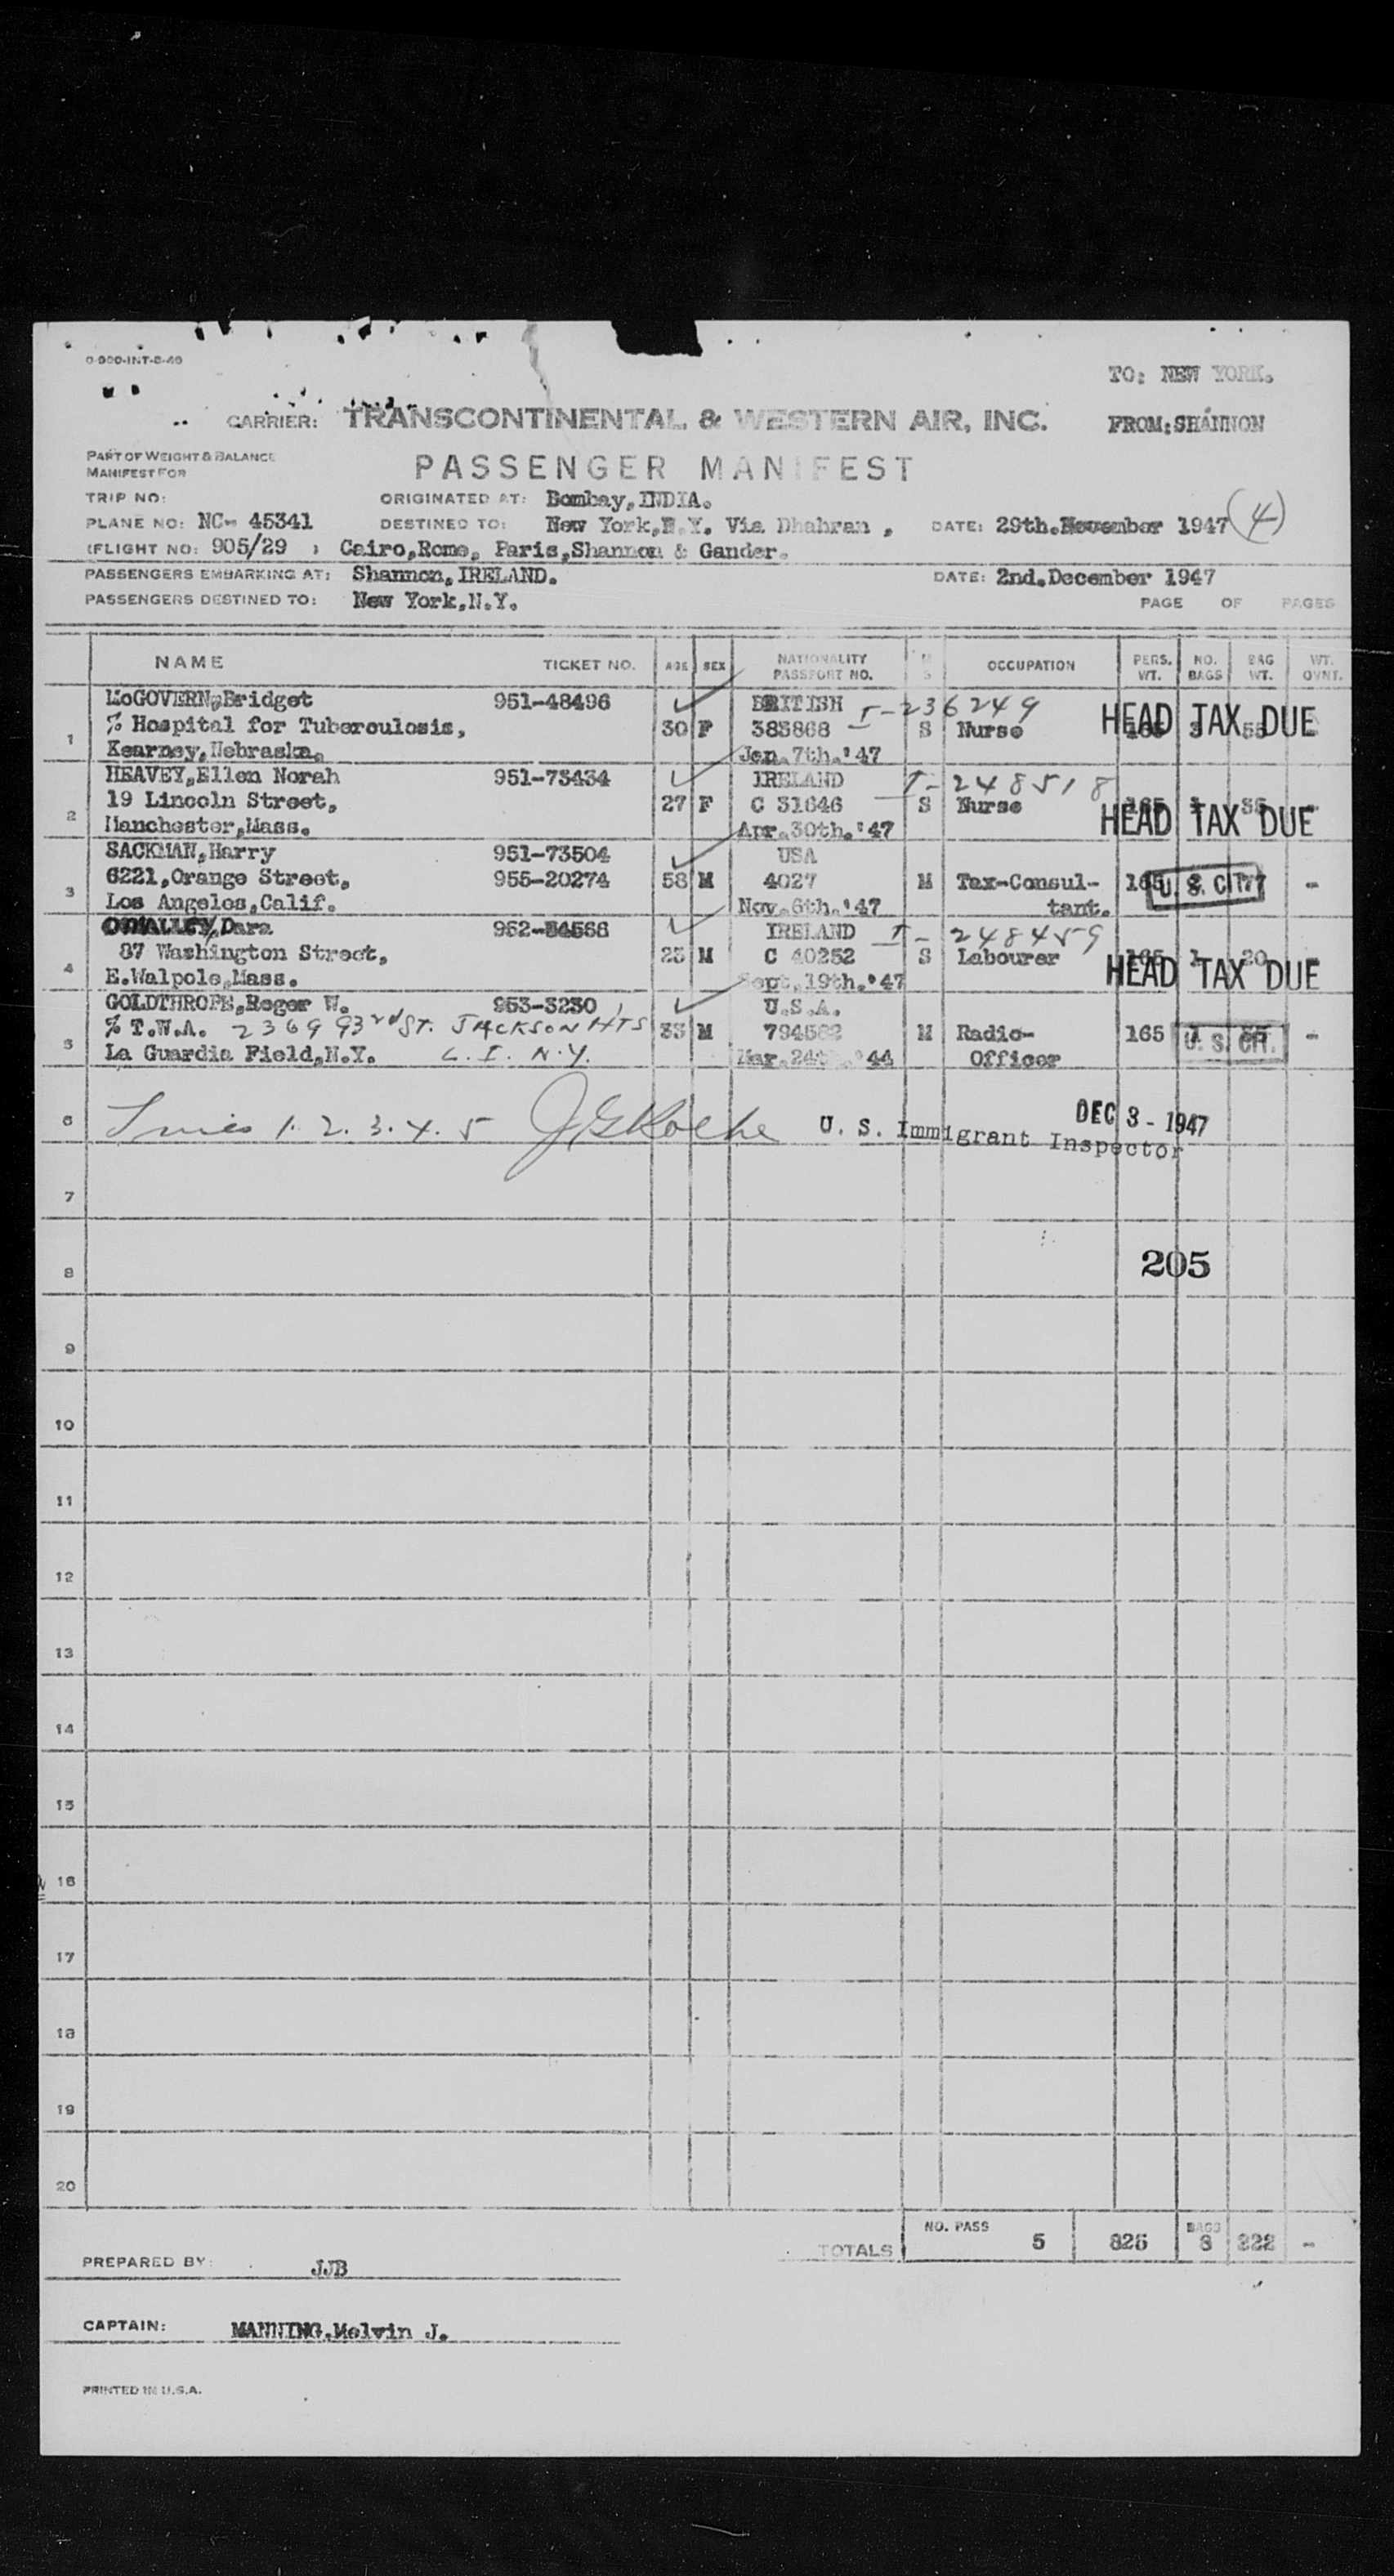 TO: NEW YORK.
CARRIER: TRANSCONTINENTAL & WESTERN AIR, INC. FROM: SHANNON
PART OF WEIGHT & BALANCE
MANIFEST FOR
PASSENGER MANIFEST
TRIP NO: ORIGINATED AT: Bombay, INDIA.
PLANE NO: NC- 45341 DESTINED TO: New York, N.Y. Via Dhahran , DATE: 29th. November 1947 (4)
(FLIGHT NO: 905/29 ) Cairo, Rome, Paris, Shannon & Gander.
PASSENGERS EMBARKING AT: Shannon, IRELAND. DATE: 2nd. December 1947
PASSENGERS DESTINED TO: New York, N.Y.
PAGE OF PAGES
NAME TICKET NO. AGE SEX NATIONALITY PASSPORT NO. M S OCCUPATION PERS. WT. NO. BAGS BAG WT. WT. OVNT.
McGOVERN, Bridget 951-48496 BRITISH I-236249
1 % Hospital for Tuberculosis, 30 F 383868 S Nurse HEAD TAX DUE
Kearney, Nebraska. Jan. 7th. '47
HEAVEY, Ellen Norah 951-73434 IRELAND I-248518
2 19 Lincoln Street, 27 F C 31646 S Nurse HEAD TAX DUE
Manchester, Mass. Apr. 30th. '47
SACKMAN, Harry 951-73504 USA
3 6221, Orange Street, 955-20274 58 M 4027 M Tax-Consul- 165 U. S. CIT. -
Los Angeles, Calif. Nov. 6th. '47 tant.
O'MALLEY, Dara 952-54566 IRELAND I-248459
4 87 Washington Street, 25 M C 40252 S Labourer 165 1 20 - HEAD TAX DUE
E. Walpole, Mass. Sept. 19th. '47
GOLDTHROPE, Roger W. 953-3230 U.S.A.
5 % T.W.A. 2369 93rd ST. JACKSON HTS 33 M 794582 M Radio- 165 U. S. CIT. -
La Guardia Field, N.Y. L. I. N.Y. Mar. 24th. '44 Officer
6 Lines 1. 2. 3. 4. 5 J G Roche U. S. Immigrant Inspector DEC 3 - 1947
7
205
8
9
10
11
12
13
14
15
16
17
18
19
20
TOTALS NO. PASS 5 825 BAGS 8 222 -
PREPARED BY: JJB
CAPTAIN: MANNING, Melvin J.
PRINTED IN U.S.A.